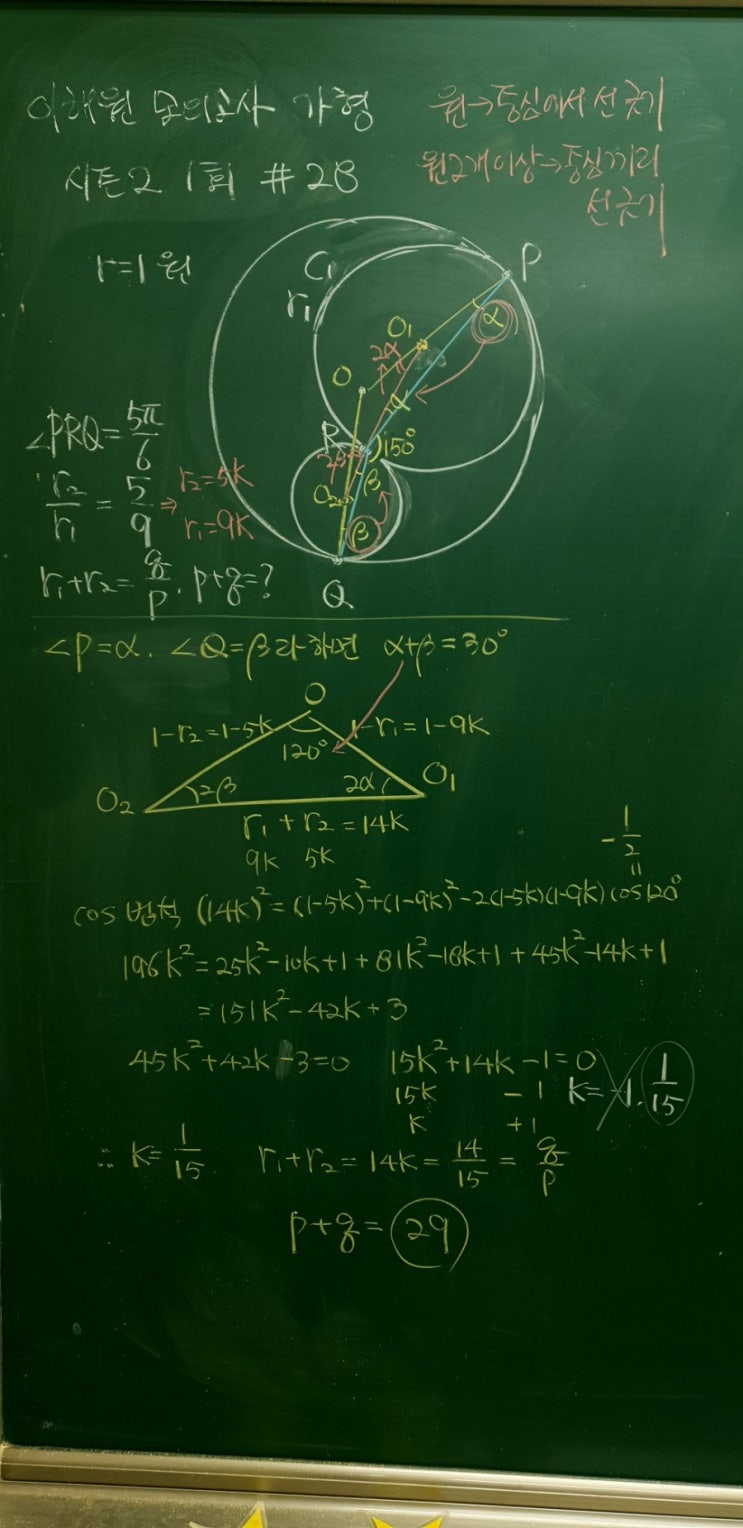 이해원 모의고사 가형
시즌2 1회 #28
원→중심에서 선 긋기
원2개이상→중심끼리
선 긋기
r=1 원
C₁
r₁
P
α
O₁
2α
O
α
R
150°
2β
β
O₂
β
Q
∠PRQ=5π/6
r₂/r₁=5/9 ⇒ r₂=5k
r₁=9k
r₁+r₂=q/p. p+q=?
∠P=α. ∠Q=β라 하면 α+β=30°
O
1-r₂=1-5k 1-r₁=1-9k
120°
O₂ 2β 2α O₁
r₁+r₂=14k
9k 5k
-1/2
॥
cos 법칙 (14k)²=(1-5k)²+(1-9k)²-2(1-5k)(1-9k)cos120°
196k²=25k²-10k+1+81k²-18k+1+45k²-14k+1
=151k²-42k+3
45k²+42k-3=0 15k²+14k-1=0
15k -1 k=-1. 1/15
k +1
∴ k=1/15 r₁+r₂=14k=14/15=q/p
p+q=29